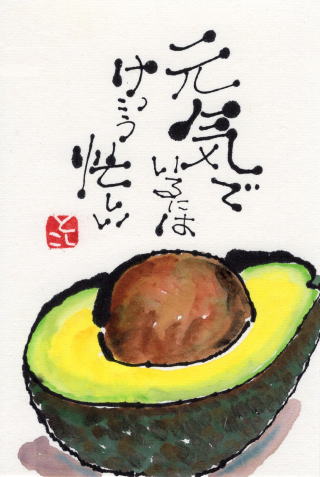 元気で
いるには
けっこう
忙しい
とし